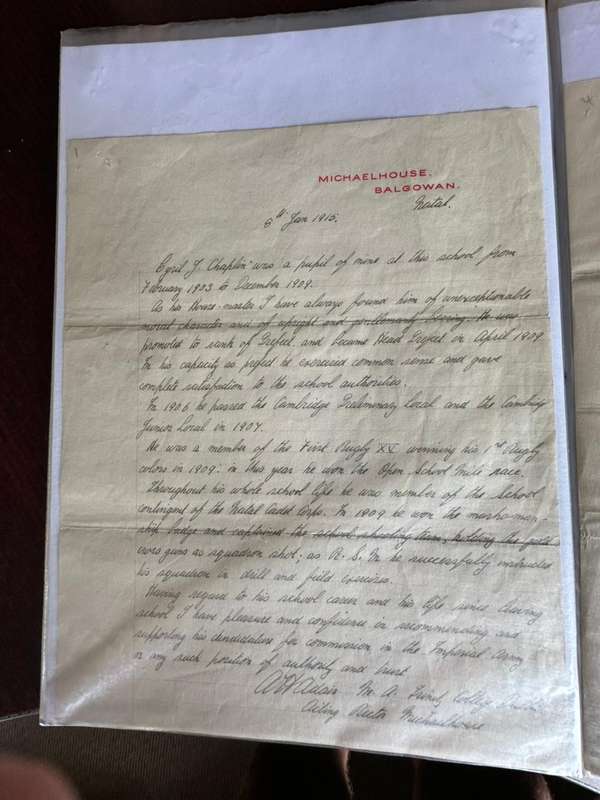 MICHAELHOUSE.
BALGOWAN.
Natal.
8th Jan 1915.
Cyril J. Chaplin was a pupil of mine at this school from
February 1903 to December 1909.
As his House-master I have always found him of unexceptionable
moral character and of upright and gentlemanly bearing. He was
promoted to rank of Prefect and became Head Prefect in April 1909
In his capacity as prefect he exercised common sense and gave
complete satisfaction to the school authorities.
In 1906 he passed the Cambridge Preliminary Local and the Cambridge
Junior Local in 1907.
He was a member of the First Rugby XV winning his 1st Rugby
colors in 1909: in this year he won the Open School Mile race.
Throughout his whole school life he was member of the School
contingent of the Natal Cadet Corps. In 1909 he won the marksman-
ship badge and captained the school shooting team, holding the gold
cross guns as squadron shot; as R. S. M he successfully instructed
his squadron in drill and field exercises.
Having regard to his school career and his life since leaving
school I have pleasure and confidence in recommending and
supporting his candidature for commission in the Imperial Army
or any such position of authority and trust
Adair M. A. Trinity College
Acting Rector Michaelhouse